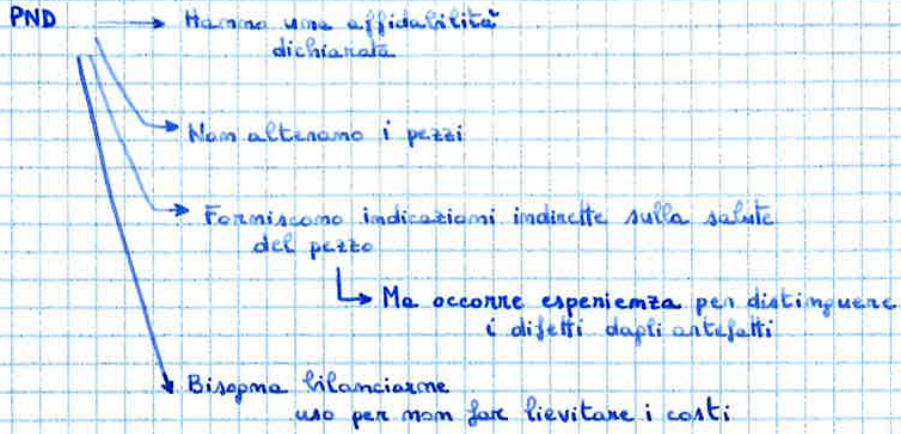 PND → Hanno una affidabilità
dichiarata
→ Non alterano i pezzi
→ Forniscono indicazioni indirette sulla salute
del pezzo
↳ Ma occorre esperienza per distinguere
i difetti dagli artefatti
→ Bisogna bilanciarne
uso per non far lievitare i costi